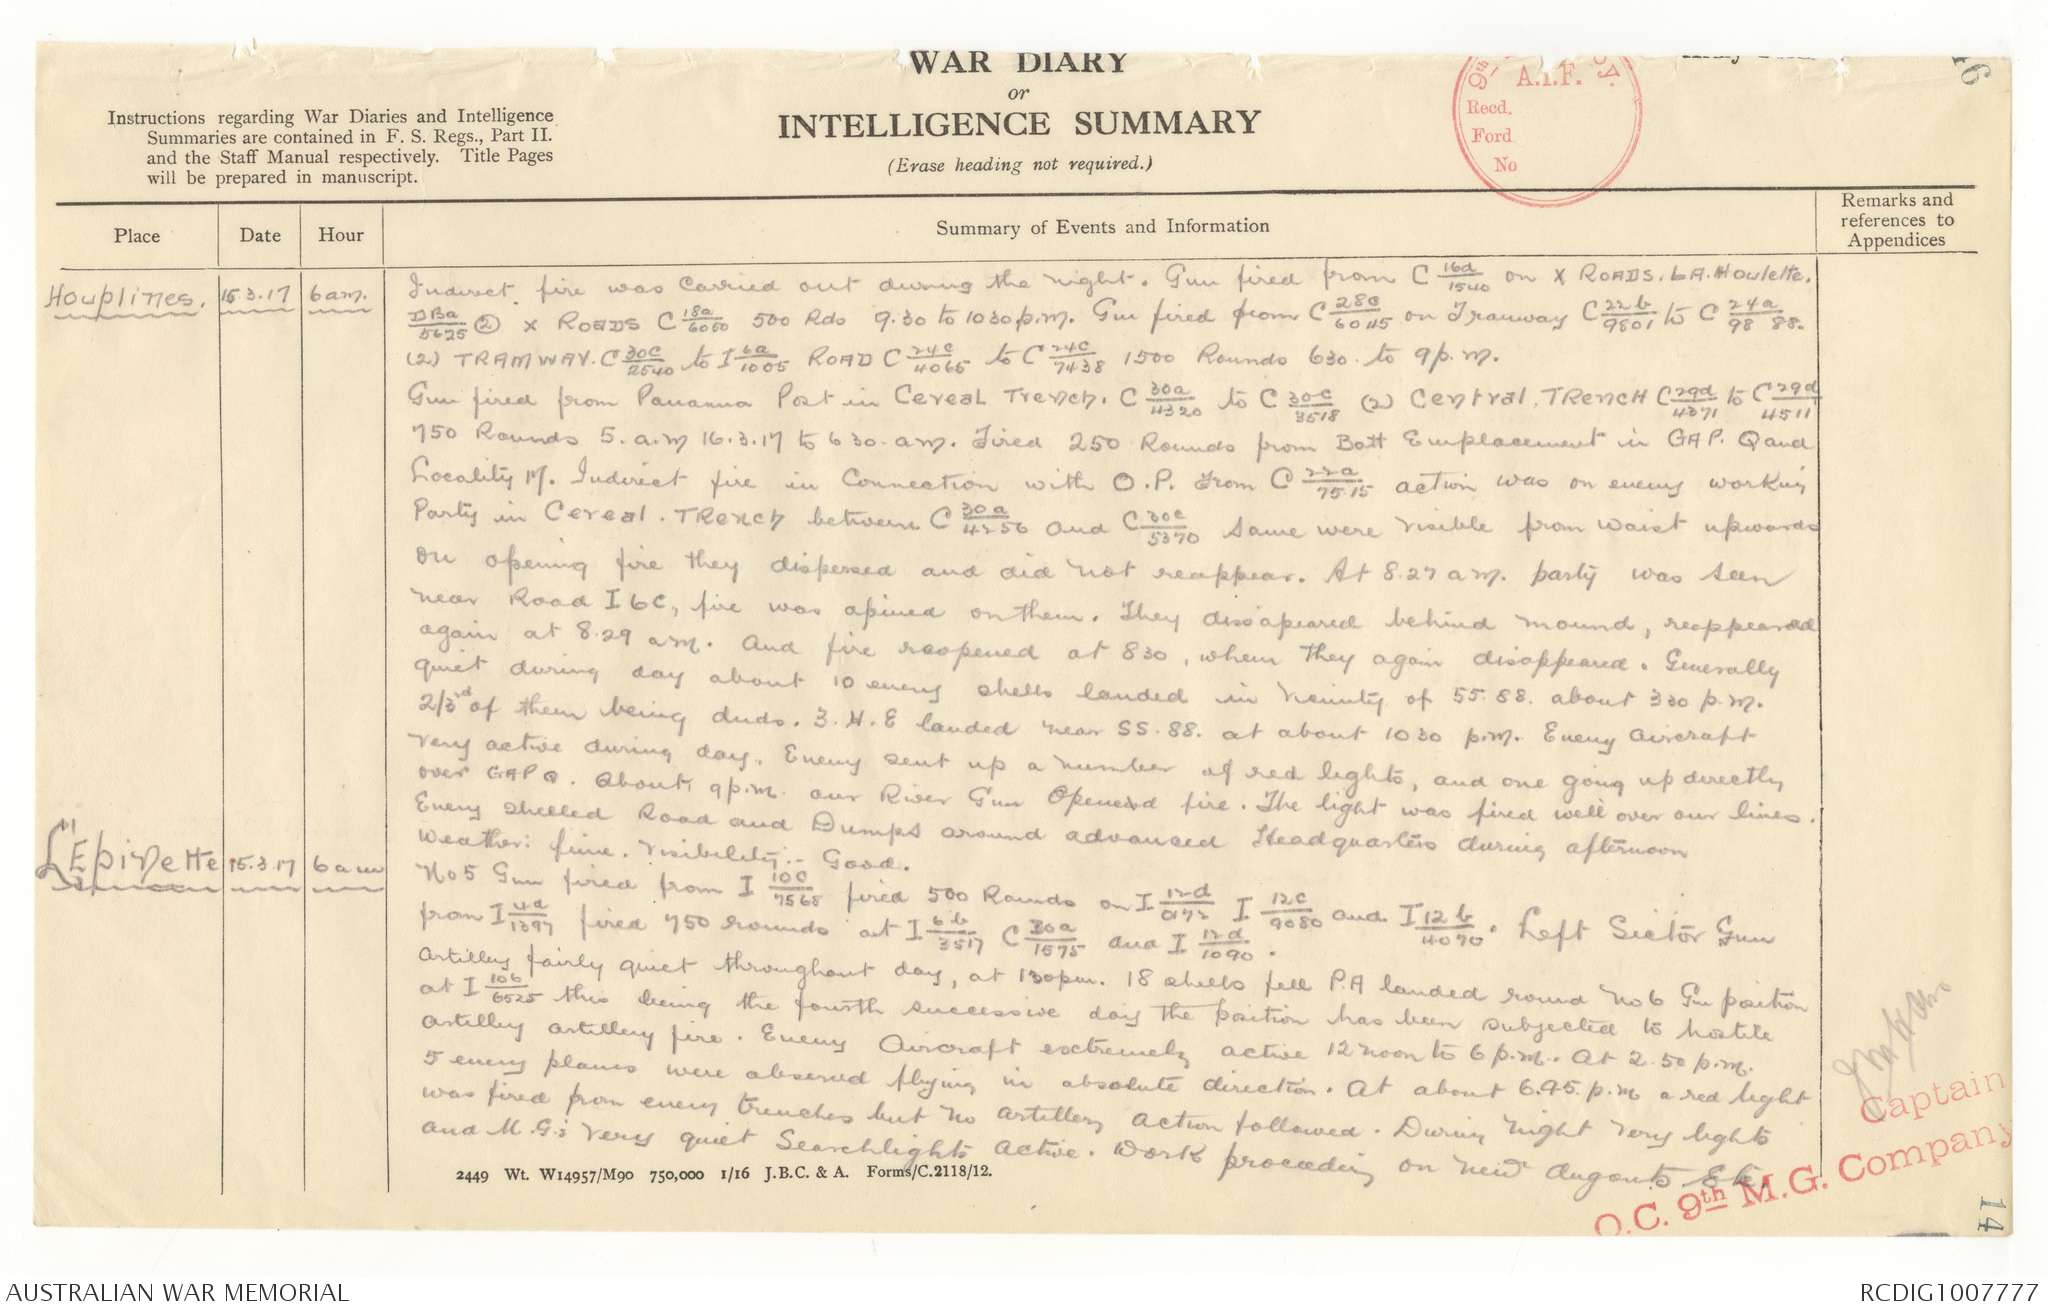 WAR DIARY
or
INTELLIGENCE SUMMARY
(Erase heading not required.)
Instructions regarding War Diaries and Intelligence
Summaries are contained in F. S. Regs., Part II.
and the Staff Manual respectively. Title Pages
will be prepared in manuscript.
9th
A.I.F.
Recd.
Ford
No
46
Place
Date
Hour
Summary of Events and Information
Remarks and
references to
Appendices
Houplines. 15.3.17 6am. Indirect fire was carried out during the night. Gun fired from C 16d/1540 on X ROADS. LA. Houlette.
5625 (2) X ROADS C 18a/6050 500 Rds 9.30 to 1030 p.m. Gun fired from C 28c/6045 on Tramway C 22b/9801 to C 24a/98 88.
(2) TRAMWAY. C 30c/2540 to I 6a/1005 ROAD C 24c/4065 to C 24c/7438 1500 Rounds 630. to 9 p.m.
Gun fired from Panama Post in Cereal Trench. C 30a/4320 to C 30c/3518 (2) Central. TRENCH C 29d/4371 to C 29d/4511
750 Rounds 5. a.m 16.3.17 to 630. a.m. Fired 250 Rounds from Batt Emplacement in GAP. Q and
Locality 17. Indirect fire in Connection with O.P. From C 22a/75.15 action was on enemy working
Party in Cereal. TRench between C 30a/4250 and C 30c/5370 Same were visible from waist upwards
on opening fire they dispersed and did not reappear. At 8.27 a.m. party was seen
near Road I 6c, fire was opined on them. They dissapeared behind mound, reappeared
again at 8.29 a.m. And fire reopened at 830, when they again disappeared. Generally
quiet during day about 10 enemy shells landed in vicinity of SS.88. about 330 p.m.
2/3rd of them being duds. 3. H.E landed near SS.88. at about 1030 p.m. Enemy aircraft
very active during day. Enemy sent up a number of red lights, and one going up directly
over GAP Q. About 9 p.m. our River Gun Opened fire. The light was fired well over our lines.
Enemy shelled Road and Dumps around advanced Headquarters during afternoon
Weather: fine. Visibility:- Good.
L'Epinette 15.3.17 6am No 5 Gun fired from I 10c/7568 fired 500 Rounds on I 12d/0172 I 12c/9080 and I 12b/4070. Left Sector Gun
from I 4d/1397 fired 750 rounds at I 6b/3517 C 30a/1575 and I 12d/1090.
Artillery fairly quiet throughout day, at 130pm. 18 shells fell P.A landed round No 6 Gun position
at I 10b/6525 this being the fourth successive day the position has been subjected to hostile
artillery artillery fire. Enemy Aircraft extremely active 12 noon to 6 p.m. At 2.50 p.m.
5 enemy planes were observed flying in absolute direction. At about 6.45. p.m a red light
was fired from enemy trenches but no artillery action followed. During Night very lights
and M.G.s very quiet Searchlights active. Work proceeding on new Etc.
2449 Wt. W14957/M90 750,000 1/16 J.B.C. & A. Forms/C.2118/12.
Captain
O.C. 9th M.G. Company
14
AUSTRALIAN WAR MEMORIAL
RCDIG1007777